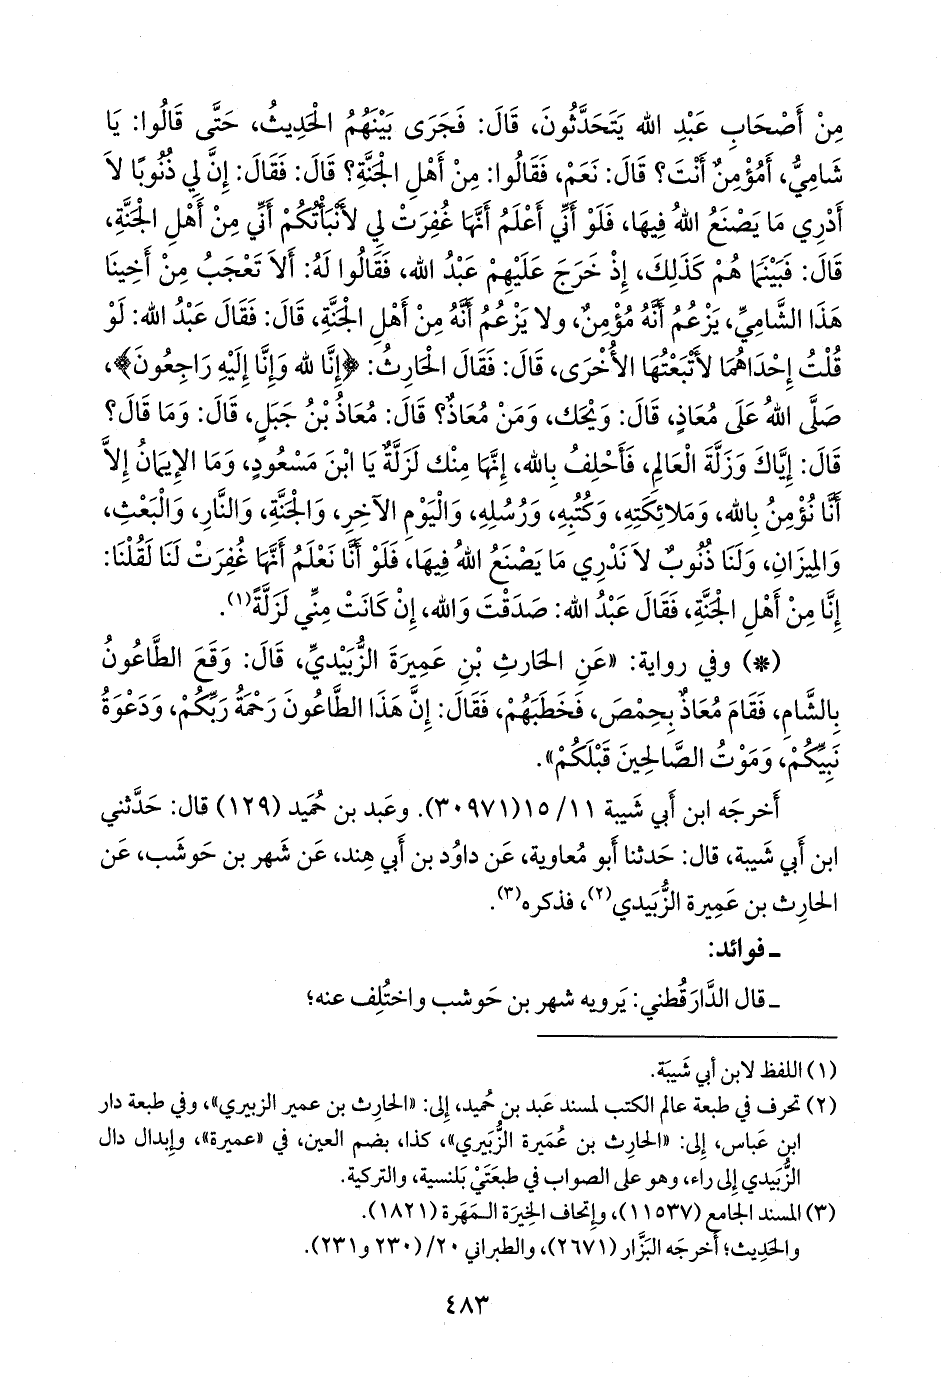 مِنْ أَصْحَابِ عَبْدِ الله يَتَحَدَّثُونَ، قَالَ: فَجَرَى بَيْنَهُمُ الْحَدِيثُ، حَتَّى قَالُوا: يَا
شَامِيُّ، أَمُؤْمِنٌ أَنْتَ؟ قَالَ: نَعَمْ، فَقَالُوا: مِنْ أَهْلِ الْجَنَّةِ؟ قَالَ: فَقَالَ: إِنَّ لِي ذُنُوبًا لاَ
أَدْرِي مَا يَصْنَعُ اللهُ فِيهَا، فَلَوْ أَنِّي أَعْلَمُ أَنَّهَا غُفِرَتْ لِي لأَنْبَأْتُكُمْ أَنِّي مِنْ أَهْلِ الْجَنَّةِ،
قَالَ: فَبَيْنَمَا هُمْ كَذَلِكَ، إِذْ خَرَجَ عَلَيْهِمْ عَبْدُ الله، فَقَالُوا لَهُ: أَلاَ تَعْجَبُ مِنْ أَخِينَا
هَذَا الشَّامِيِّ، يَزْعُمُ أَنَّهُ مُؤْمِنٌ، ولا يَزْعُمُ أَنَّهُ مِنْ أَهْلِ الْجَنَّةِ، قَالَ: فَقَالَ عَبْدُ الله: لَوْ
قُلْتُ إِحْدَاهُمَا لأَتْبَعْتُهَا الأُخْرَى، قَالَ: فَقَالَ الْحَارِثُ: ﴿إِنَّا لله وَإِنَّا إِلَيْهِ رَاجِعُونَ﴾،
صَلَّى اللهُ عَلَى مُعَاذٍ، قَالَ: وَيْحَك، وَمَنْ مُعَاذٌ؟ قَالَ: مُعَاذُ بْنُ جَبَلٍ، قَالَ: وَمَا قَالَ؟
قَالَ: إِيَّاكَ وَزَلَّةَ الْعَالِمِ، فَأَحْلِفُ بِالله، إِنَّهَا مِنْك لَزَلَّةٌ يَا ابْنَ مَسْعُودٍ، وَمَا الإِيمَانُ إِلاَّ
أَنَّا نُؤْمِنُ بِالله، وَمَلاَئِكَتِهِ، وَكُتُبِهِ، وَرُسُلِهِ، وَالْيَوْمِ الآخِرِ، وَالْجَنَّةِ، وَالنَّارِ، وَالْبَعْثِ،
وَالْمِيزَانِ، وَلَنَا ذُنُوبٌ لاَ نَدْرِي مَا يَصْنَعُ اللهُ فِيهَا، فَلَوْ أَنَّا نَعْلَمُ أَنَّهَا غُفِرَتْ لَنَا لَقُلْنَا:
إِنَّا مِنْ أَهْلِ الْجَنَّةِ، فَقَالَ عَبْدُ الله: صَدَقْتَ وَالله، إِنْ كَانَتْ مِنِّي لَزَلَّةً(١).
(*) وفي رواية: «عَنِ الْحَارِثِ بْنِ عَمِيرَةَ الزُّبَيْدِيِّ، قَالَ: وَقَعَ الطَّاعُونُ
بِالشَّامِ، فَقَامَ مُعَاذٌ بِحِمْصَ، فَخَطَبَهُمْ، فَقَالَ: إِنَّ هَذَا الطَّاعُونَ رَحْمَةُ رَبِّكُمْ، وَدَعْوَةُ
نَبِيِّكُمْ، وَمَوْتُ الصَّالِحِينَ قَبْلَكُمْ».
أَخرجَه ابن أَبي شَيبة ١١/ ١٥(٣٠٩٧١). وعَبد بن حُميد (١٢٩) قال: حَدَّثني
ابن أَبي شَيبة، قال: حَدثنا أَبو مُعاوية، عَن داوُد بن أَبي هِند، عَن شَهر بن حَوشَب، عَن
الحارِث بن عَمِيرة الزُّبَيدي(٢)، فذكره(٣).
ـ فوائد:
ـ قال الدَّارَقُطني: يَرويه شهر بن حَوشب واختُلِف عنه؛
(١) اللفظ لابن أَبي شَيبَة.
(٢) تحرف في طبعة عالم الكتب لمسند عَبد بن حُميد، إِلى: «الحارِث بن عمير الزبيري»، وفي طبعة دار
ابن عَباس، إِلى: «الحارِث بن عُمَيرة الزُّبَيري»، كذا، بضم العين، في «عميرة»، وإِبدال دال
الزُّبَيدي إِلى راء، وهو على الصواب في طبعَتَيْ بَلنسية، والتركية.
(٣) المسند الجامع (١١٥٣٧)، وإِتحاف الخِيرَة الـمَهَرة (١٨٢١).
والحَدِيث؛ أَخرجَه البَزَّار (٢٦٧١)، والطبراني ٢٠/ (٢٣٠ و٢٣١).
٤٨٣